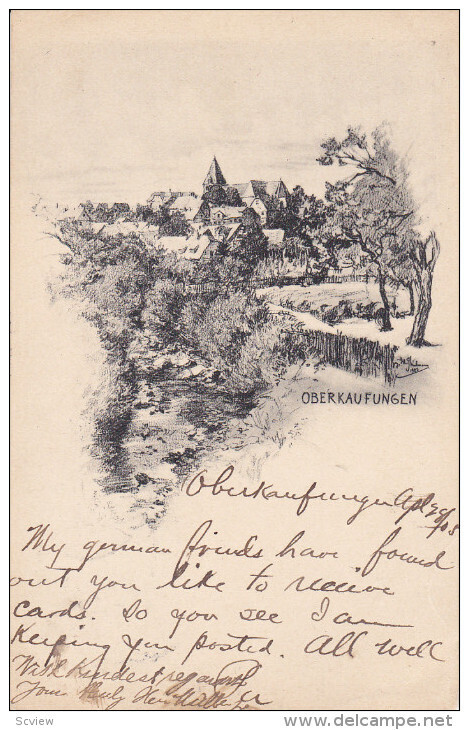 OBERKAUFUNGEN
Oberkaufungen Apl 29/03
My german friends have found
out you like to receive
cards. So you see I am
Keeping you posted. All well
With Kindest regards
Yours Truly
Scview